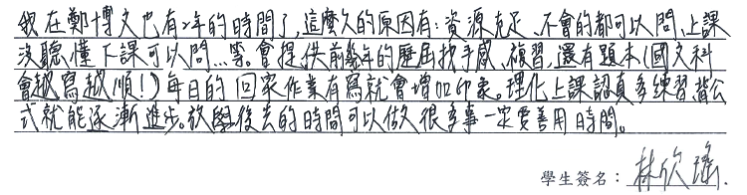 我在鄭博文也有2年的時間了,這麼久的原因有:資源充足、不會的都可以問、上課
沒聽懂下課可以問…等。會提供前幾年的歷屆找手感、複習,還有題本(國文科
會越寫越順!)每日的回家作業有寫就會增加印象。理化上課認真多練習背公
式就能逐漸進步。放學後去的時間可以做很多事一定要善用時間。
學生簽名:林欣瑤.